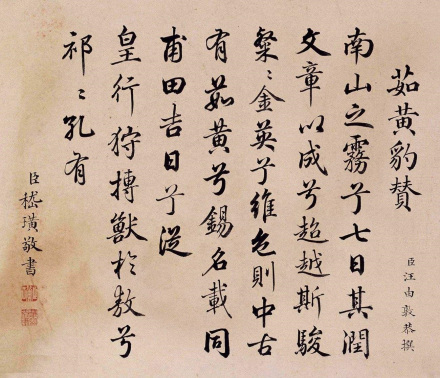 茹黃豹贊
臣汪由敦恭撰
南山之霧兮七日其潤
文章以成兮超越斯駿
粲〻金英兮維色則中古
有茹黃兮錫名載同
甫田吉日兮從
皇行狩搏獸於敖兮
祁〻孔有
臣嵇璜敬書